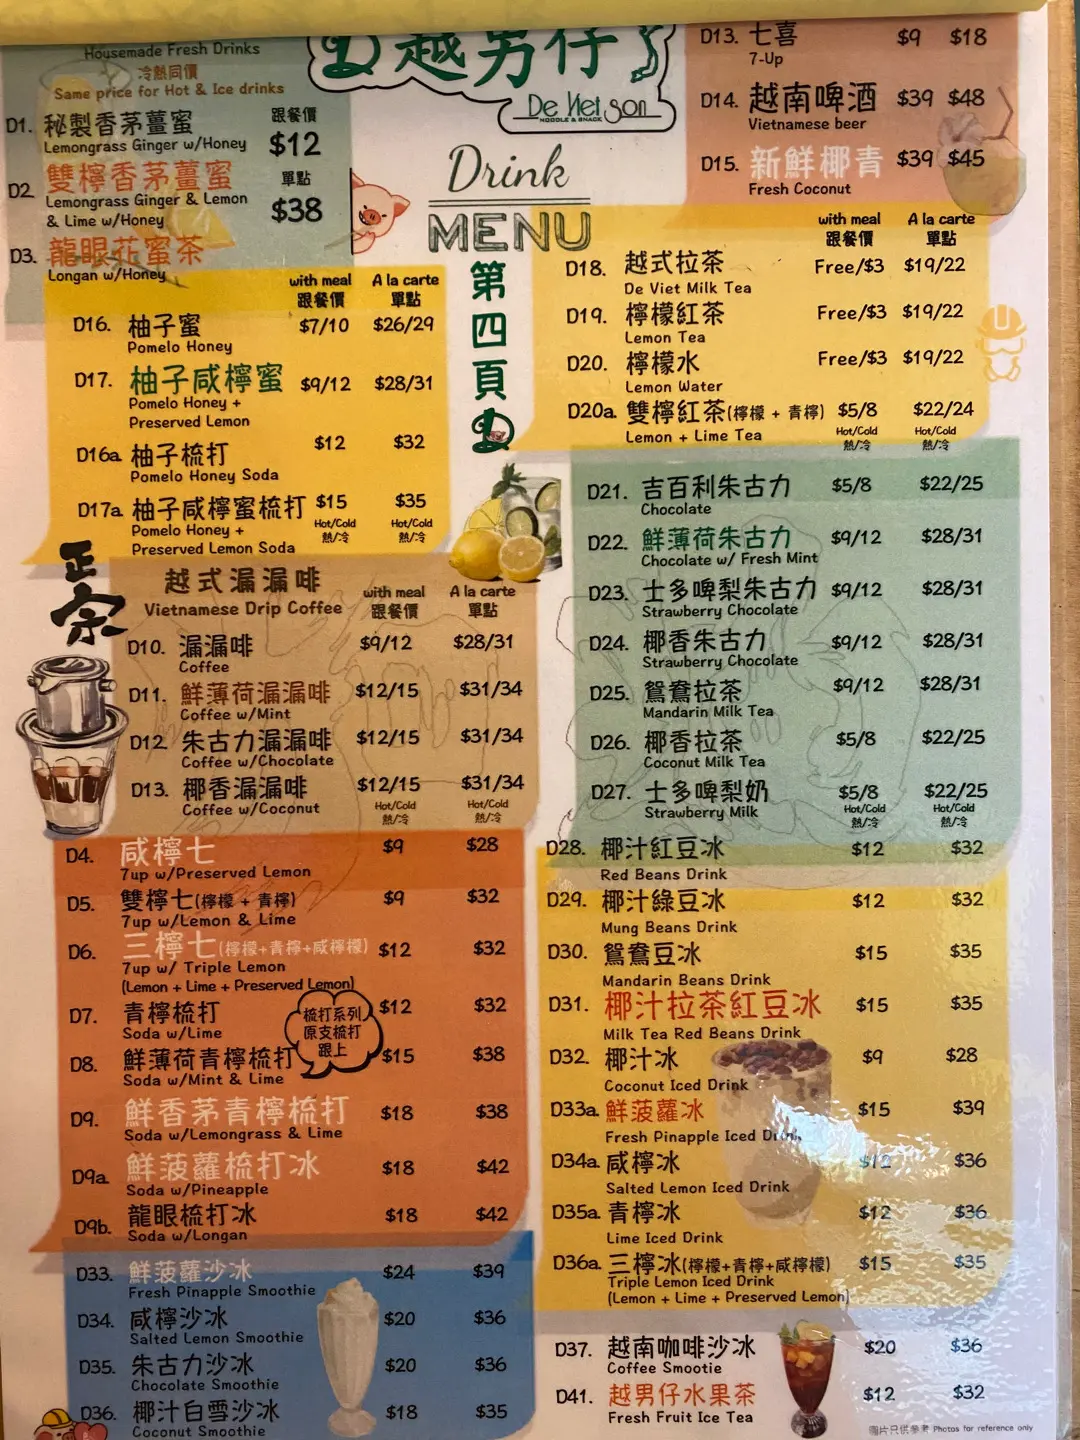 Housemade Fresh Drinks
冷熱同價
Same price for Hot & Ice drinks
D1. 秘製香茅薑蜜 跟餐價
Lemongrass Ginger w/Honey $12
D2 雙檸香茅薑蜜 單點
Lemongrass Ginger & Lemon $38
& Lime w/Honey
D3. 龍眼花蜜茶
Longan w/Honey
越男仔
De Viet Son
NOODLE & SNACK
Drink
MENU
第四頁
D13. 七喜 $9 $18
7-Up
D14. 越南啤酒 $39 $48
Vietnamese beer
D15. 新鮮椰青 $39 $45
Fresh Coconut
with meal A la carte
跟餐價 單點
D16. 柚子蜜 $7/10 $26/29
Pomelo Honey
D17. 柚子咸檸蜜 $9/12 $28/31
Pomelo Honey +
Preserved Lemon
D16a 柚子梳打 $12 $32
Pomelo Honey Soda
D17a 柚子咸檸蜜梳打 $15 $35
Pomelo Honey + Hot/Cold Hot/Cold
Preserved Lemon Soda 熱/冷 熱/冷
with meal A la carte
跟餐價 單點
D18. 越式拉茶 Free/$3 $19/22
De Viet Milk Tea
D19. 檸檬紅茶 Free/$3 $19/22
Lemon Tea
D20. 檸檬水 Free/$3 $19/22
Lemon Water
D20a 雙檸紅茶(檸檬 + 青檸) $5/8 $22/24
Lemon + Lime Tea Hot/Cold Hot/Cold
熱/冷 熱/冷
正宗
越式漏漏啡 with meal A la carte
Vietnamese Drip Coffee 跟餐價 單點
D10. 漏漏啡 $9/12 $28/31
Coffee
D11. 鮮薄荷漏漏啡 $12/15 $31/34
Coffee w/Mint
D12. 朱古力漏漏啡 $12/15 $31/34
Coffee w/Chocolate
D13. 椰香漏漏啡 $12/15 $31/34
Coffee w/Coconut Hot/Cold Hot/Cold
熱/冷 熱/冷
D21. 吉百利朱古力 $5/8 $22/25
Chocolate
D22. 鮮薄荷朱古力 $9/12 $28/31
Chocolate w/ Fresh Mint
D23. 士多啤梨朱古力 $9/12 $28/31
Strawberry Chocolate
D24. 椰香朱古力 $9/12 $28/31
Strawberry Chocolate
D25. 鴛鴦拉茶 $9/12 $28/31
Mandarin Milk Tea
D26. 椰香拉茶 $5/8 $22/25
Coconut Milk Tea
D27. 士多啤梨奶 $5/8 $22/25
Strawberry Milk Hot/Cold Hot/Cold
熱/冷 熱/冷
D4. 咸檸七 $9 $28
7up w/Preserved Lemon
D5. 雙檸七(檸檬 + 青檸) $9 $32
7up w/Lemon & Lime
D6. 三檸七(檸檬+青檸+咸檸檬) $12 $32
7up w/ Triple Lemon
(Lemon + Lime + Preserved Lemon)
D7. 青檸梳打 $12 $32
Soda w/Lime
梳打系列
原支梳打
跟上
D8. 鮮薄荷青檸梳打 $15 $38
Soda w/Mint & Lime
D9. 鮮香茅青檸梳打 $18 $38
Soda w/Lemongrass & Lime
D9a. 鮮菠蘿梳打冰 $18 $42
Soda w/Pineapple
D9b. 龍眼梳打冰 $18 $42
Soda w/Longan
D28. 椰汁紅豆冰 $12 $32
Red Beans Drink
D29. 椰汁綠豆冰 $12 $32
Mung Beans Drink
D30. 鴛鴦豆冰 $15 $35
Mandarin Beans Drink
D31. 椰汁拉茶紅豆冰 $15 $35
Milk Tea Red Beans Drink
D32. 椰汁冰 $9 $28
Coconut Iced Drink
D33a. 鮮菠蘿冰 $15 $39
Fresh Pinapple Iced Drink
D34a. 咸檸冰 $12 $36
Salted Lemon Iced Drink
D35a. 青檸冰 $12 $36
Lime Iced Drink
D36a. 三檸冰(檸檬+青檸+咸檸檬) $15 $35
Triple Lemon Iced Drink
(Lemon + Lime + Preserved Lemon)
D33. 鮮菠蘿沙冰 $24 $39
Fresh Pinapple Smoothie
D34. 咸檸沙冰 $20 $36
Salted Lemon Smoothie
D35. 朱古力沙冰 $20 $36
Chocolate Smoothie
D36. 椰汁白雪沙冰 $18 $35
Coconut Smoothie
D37. 越南咖啡沙冰 $20 $36
Coffee Smootie
D41. 越男仔水果茶 $12 $32
Fresh Fruit Ice Tea
圖片只供參考 Photos for reference only